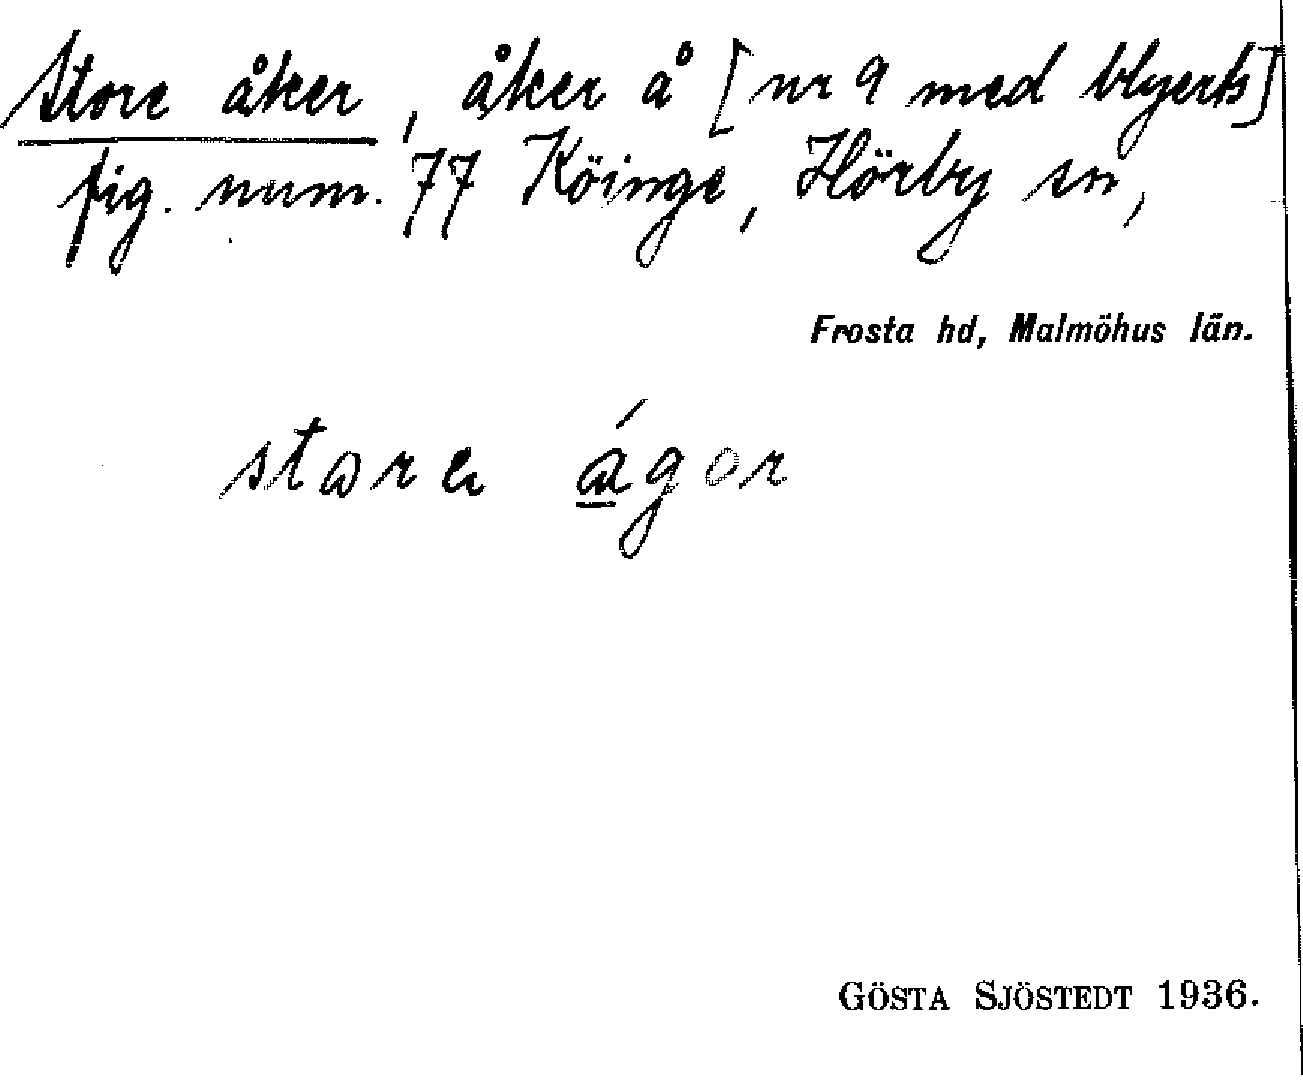 Store åker, åker å [nr 9 med blyerts]
fig. num. 77 Köinge, Hörby sn,
Frosta hd, Malmöhus län.
store ágor
GÖSTA SJÖSTEDT 1936.